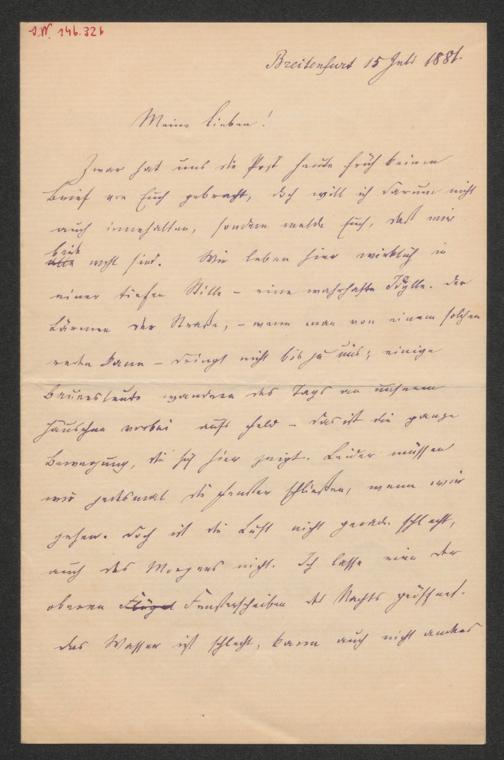 J.N. 146.326
Breitenfurt 15 Juli 1881.
Meine Lieben!
Zwar hat uns die Post heute früh keinen
Brief von Euch gebracht, doch will ich darum nicht
auch innehalten, sondern melde Euch, daß wir
beide
alle wohl sind. Wir leben hier wirklich in
einer tiefen Stille – eine wahrhafte Idylle. Der
Lärmen der Straße, – wenn man von einem solchen
reden kann – dringt nicht bis zu uns; einige
Bauersleute wandern des Tags an unserem
Häuschen vorbei aufs Feld – das ist die ganze
Bewegung, die sich hier zeigt. Leider müssen
wir jedesmal die Fenster schließen, wenn wir
gehen. Doch ist die Luft nicht gerade schlecht,
auch des Morgens nicht. Ich lasse eine der
oberen Flügel Fensterscheiben des Nachts geöffnet.
Das Wasser ist schlecht, kann auch nicht anders